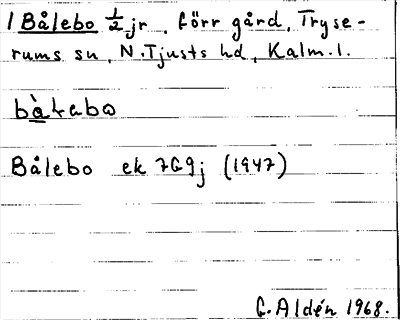 1 Bålebo ½ jr, förr gård, Tryse-
rums sn, N. Tjusts hd, Kalm. l.
Bålebo ek 7G9j (1947)
G. Aldén 1968.